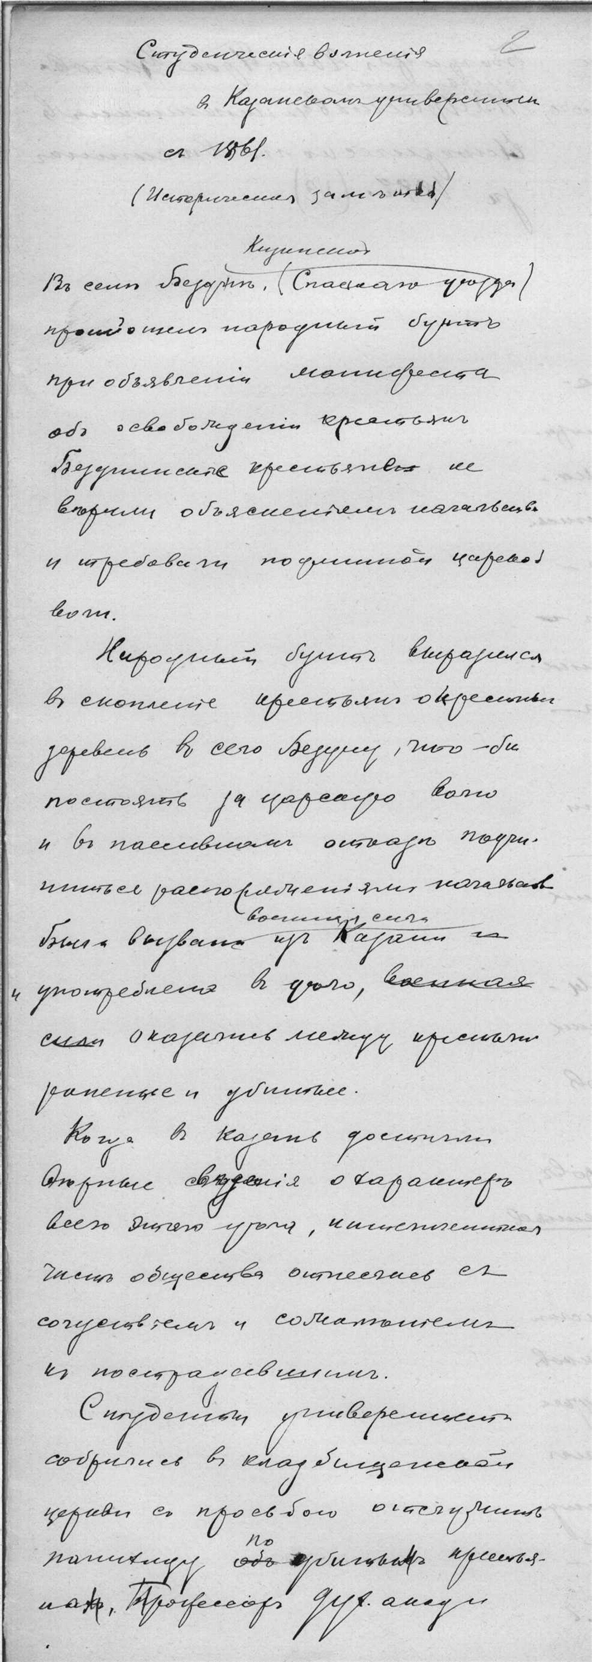 2
Студенческія волненія
в Казанскомъ университетѣ
въ 1861.
(Историческая замѣтка)
Казанской
Въ селѣ Безднѣ, (Спаскаго уѣзда)
произошелъ народный бунтъ
при объявленіи манифеста
объ освобожденіи крестьянъ
Бездинскіе крестьяне не
вѣрили объясненіямъ начальства
и требовали подлинной царской
воли.
Народный бунтъ выразился
въ скопленіе крестьянъ окрестныхъ
деревень въ село Бездну, что-бы
постоять за царскую волю
и въ пассивномъ отказѣ подчи-
ниться распоряженіямъ начальства
военная сила
Была вызвана изъ Казани и
и употреблена въ дѣло, военная
сила оказались между крестьянъ
раненые и убитые.
Когда въ Казань достигли
вѣрные свѣденія о характерѣ
всего этого дѣла, интеллигентная
часть общества отнеслась съ
сочуствіемъ и сожалѣніемъ
къ пострадавшимъ.
Студенты университета
собрались въ кладбищенской
церкви съ просьбою отслужить
по
панихиду объ убитымъ крестья-
намъ, Профессоръ Дух. акаде